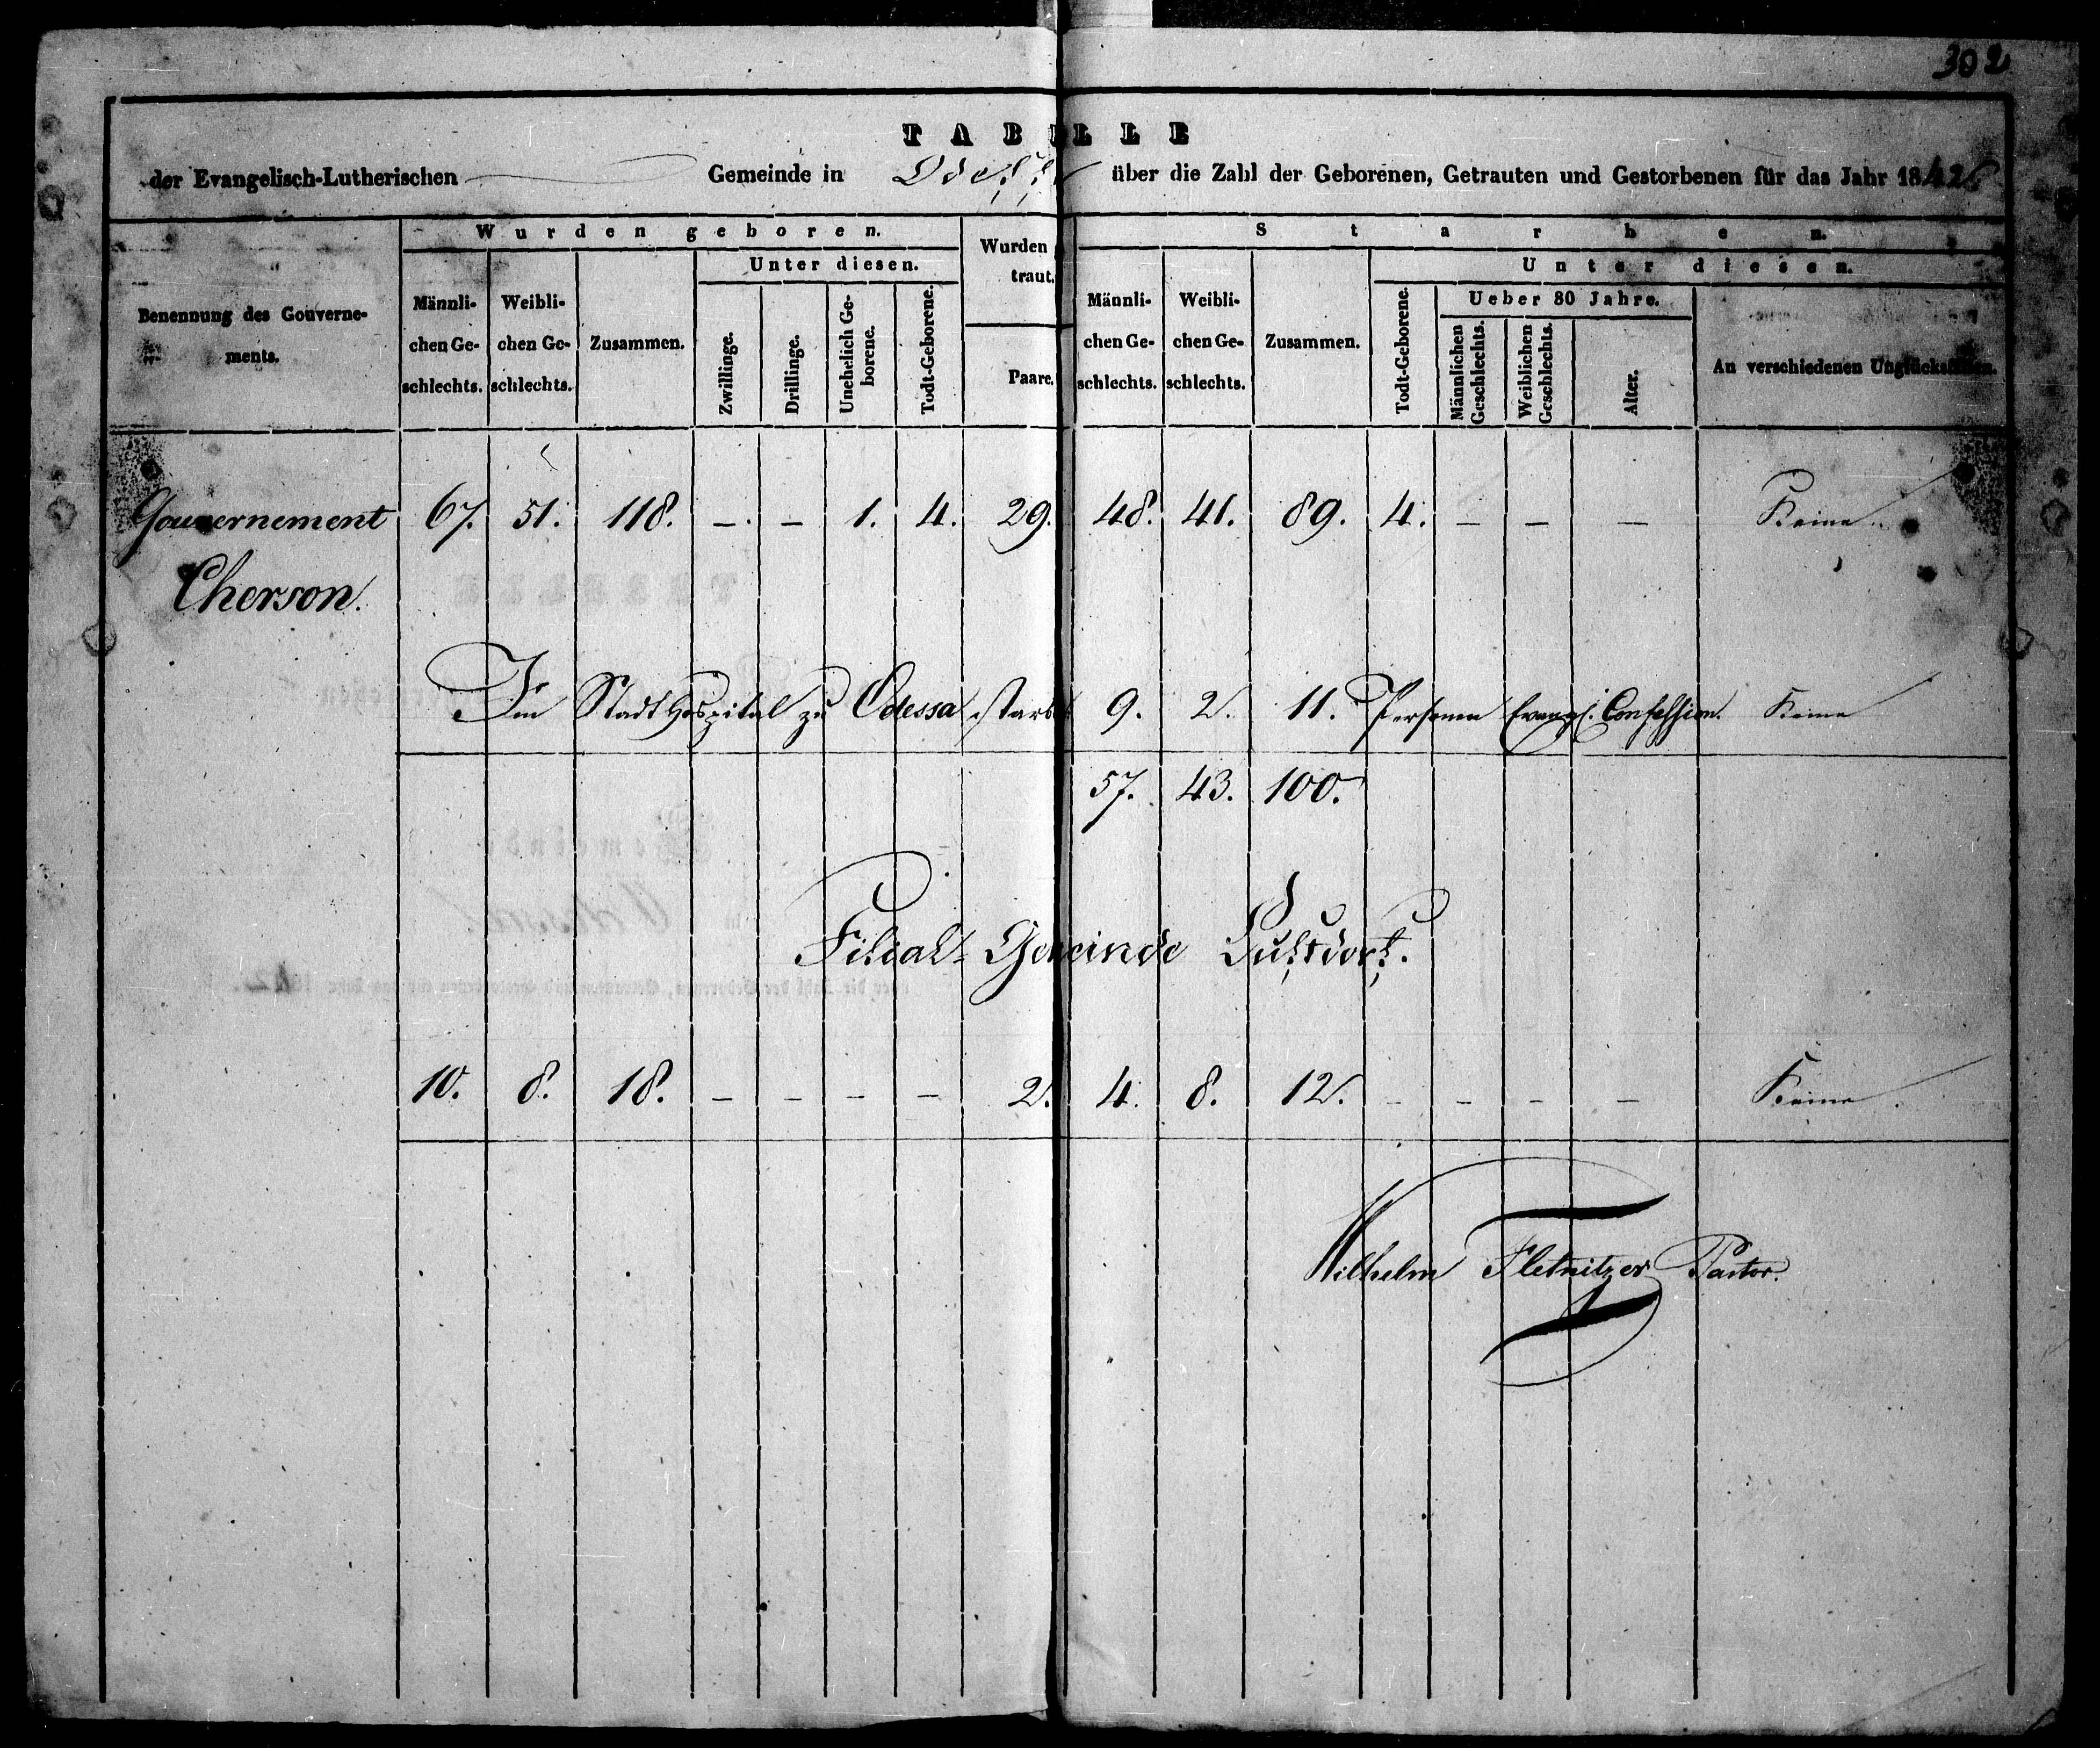 302
TABELLE
der Evangelisch-Lutherischen Gemeinde in Odessa über die Zahl der Geborenen, Getrauten und Gestorbenen für das Jahr 1842
Wurden geboren. Wurden traut. Starben.
Unter diesen. Unter diesen.
Benennung des Gouvernements. Männlichen Geschlechts. Weiblichen Geschlechts. Zusammen. Zwillinge. Drillinge. Unehelich Geborene. Todt-Geborene. Paare. Männlichen Geschlechts. Weiblichen Geschlechts. Zusammen. Todt-Geborene. Ueber 80 Jahre. Männlichen Geschlechts. Weiblichen Geschlechts. Alter. An verschiedenen Unglücksfällen.
Gouvernement 67. 51. 118. — — 1. 4. 29. 48. 41. 89. 4. — — — Keine
Cherson.
Im StadtHospital zu Odessa starben 9. 2. 11. Personen Evangl. Confession. Keine
57. 43. 100.
Filial-Gemeinde Lustdorf.
10. 8. 18. — — — — 2. 4. 8. 12. — — — — Keine
Wilhelm Fletnitzer Pastor.